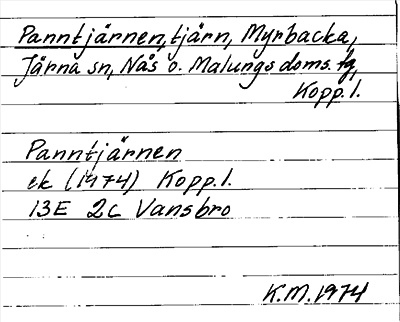 Panntjärnen, tjärn, Myrbacka,
Järna sn, Nås o. Malungs doms. fg,
Kopp. l.
Panntjärnen
ek (1974) Kopp. l.
13E 2c Vansbro
K.M. 1974